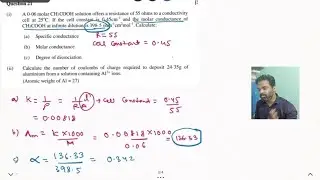 Question 21
(i) A 0·06 molar CH3COOH solution offers a resistance of 55 ohms to a conductivity
cell at 25°C. If the cell constant is 0·45cm⁻¹ and the molar conductance of
CH3COOH at infinite dilution is 398·5 ohm⁻¹cm²mol⁻¹. Calculate:
(a) Specific conductance R = 55
(b) Molar conductance Cell Constant = 0.45
(c) Degree of dissociation
(ii) Calculate the number of coulombs of charge required to deposit 24·35g of
aluminium from a solution containing Al³⁺ ions.
(Atomic weight of Al = 27)
a) K = 1/ρ = 1/R × Cell Constant = 0.45/55
= 0.00818
b) Λm = K × 1000 / M = 0.00818 × 1000 / 0.06 = 136.33
c) α = 136.33 / 398.5 = 0.342